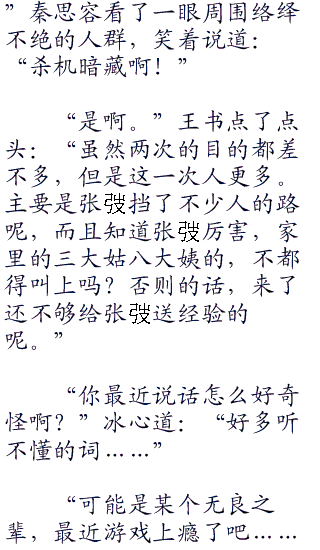 ”秦思容看了一眼周围络绎
不绝的人群，笑着说道：
“杀机暗藏啊！”
“是啊。”王书点了点
头：“虽然两次的目的都差
不多，但是这一次人更多。
主要是张弢挡了不少人的路
呢，而且知道张弢厉害，家
里的三大姑八大姨的，不都
得叫上吗？否则的话，来了
还不够给张弢送经验的
呢。”
“你最近说话怎么好奇
怪啊？”冰心道：“好多听
不懂的词……”
“可能是某个无良之
辈，最近游戏上瘾了吧……